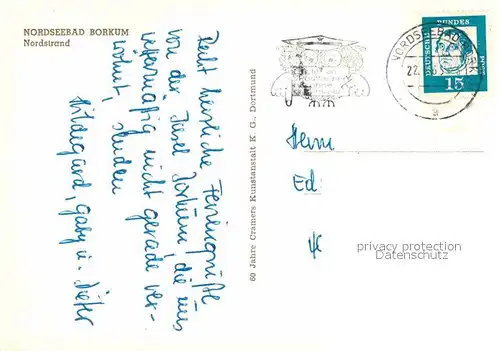 NORDSEEBAD BORKUM
Nordstrand
Recht herzliche Feriengrüße
von der Insel Borkum, die uns
wettermäßig nicht gerade ver-
wöhnt, senden
Hildegard, Gaby u. Dieter
60 Jahre Cramers Kunstanstalt K G., Dortmund
NORDSEEBAD
22.
DEUTSCHE
BUNDES
15
Herrn
Ed
privacy protection
Datenschutz